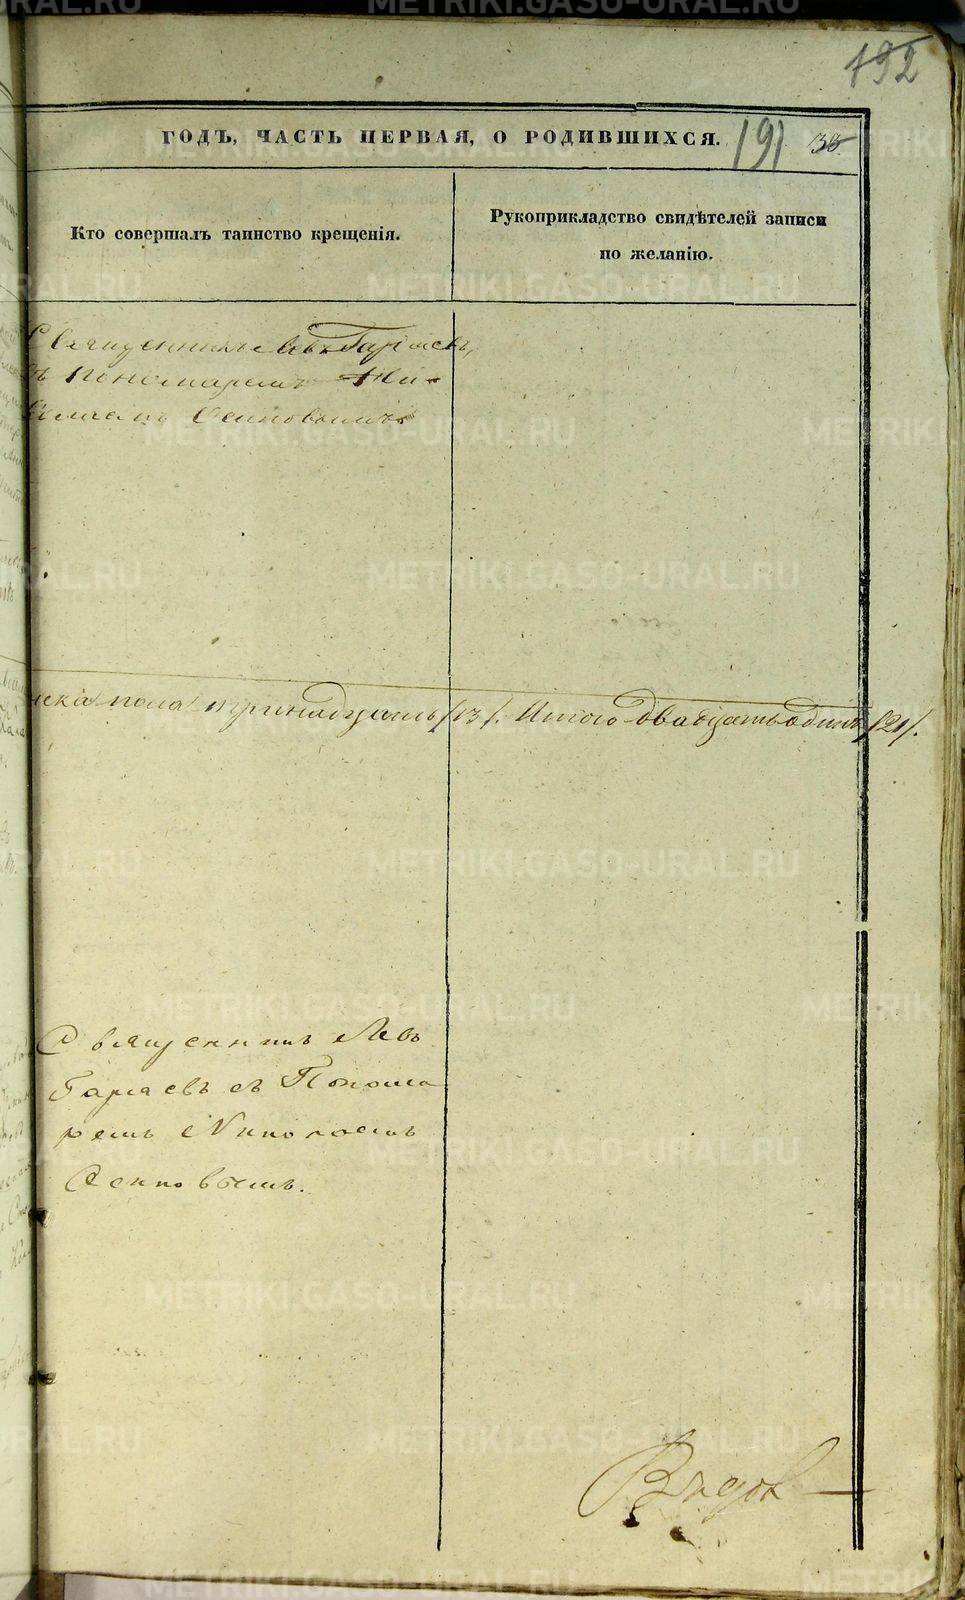 192
ГОДЪ, ЧАСТЬ ПЕРВАЯ, О РОДИВШИХСЯ. 191 38
Кто совершалъ таинство крещенія.
Рукоприкладство свидѣтелей записи
по желанію.
Священникъ Левъ Гаряевъ,
съ Пономаремъ Ни-
колаемъ
ска пола тринадцать /13/. Итого двадцать одинъ /21/.
Священникъ Левъ
Гаряевъ съ Понома
ремъ Николаемъ
METRIKI.GASO-URAL.RU